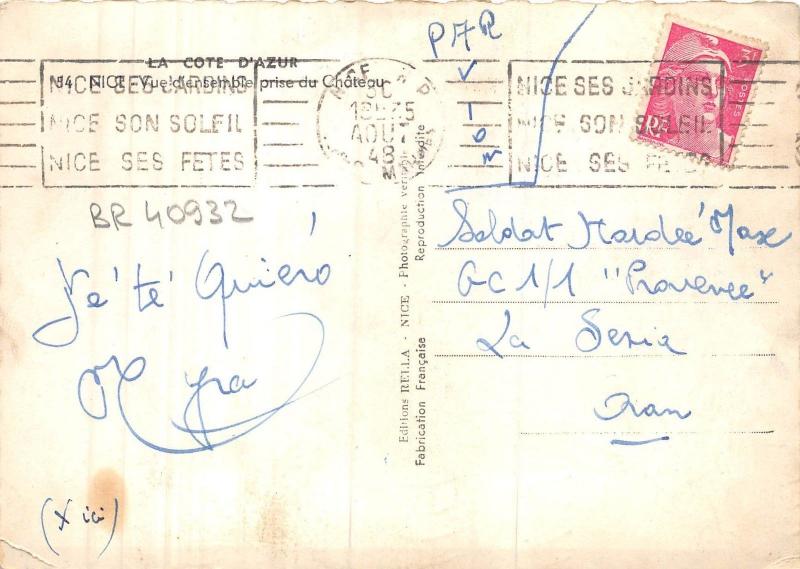 LA COTE D'AZUR
54 NICE Vue d'ensemble prise du Château
NICE SES JARDINS
NICE SON SOLEIL
NICE SES FETES
NICE
18H35
AOU
48
NICE SES JARDINS
NICE SON SOLEIL
NICE SES FETES
POSTES
PAR
AVION
BR 40932
Jé té Quiéro
Myra
(X ici)
Editions RELLA - NICE - Photographie véritable
Fabrication Française Reproduction Interdite
Soldat Hardée Max
GC 1/1 "Provence"
La Senia
Oran